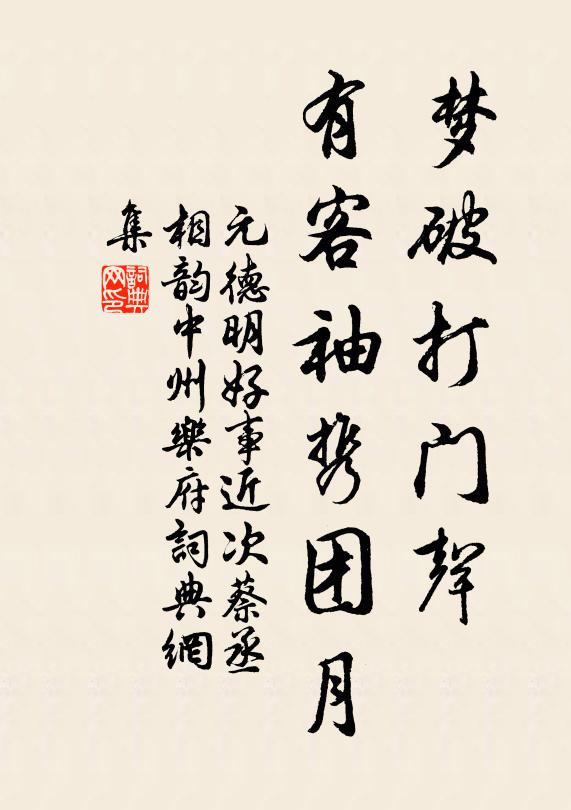 梦破打门聲
有客袖携团月
元德明好事近次蔡丞
相韵中州樂府詞典網
集
詞典
网印